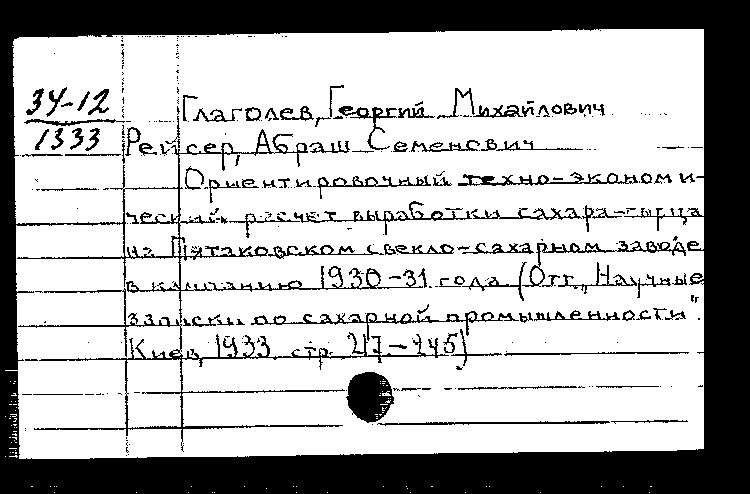 34-12
1333
Глаголев, Георгий Михайлович
Рейсер, Абраш Семенович
Ориентировочный техно-экономи-
ческий расчет выработки сахара-
на Пятаковском свекло-сахарном заводе
в кампанию 1930-31 года (Отт. „Научные
записки по сахарной промышленности".
Киев, 1933 стр. 217-245)